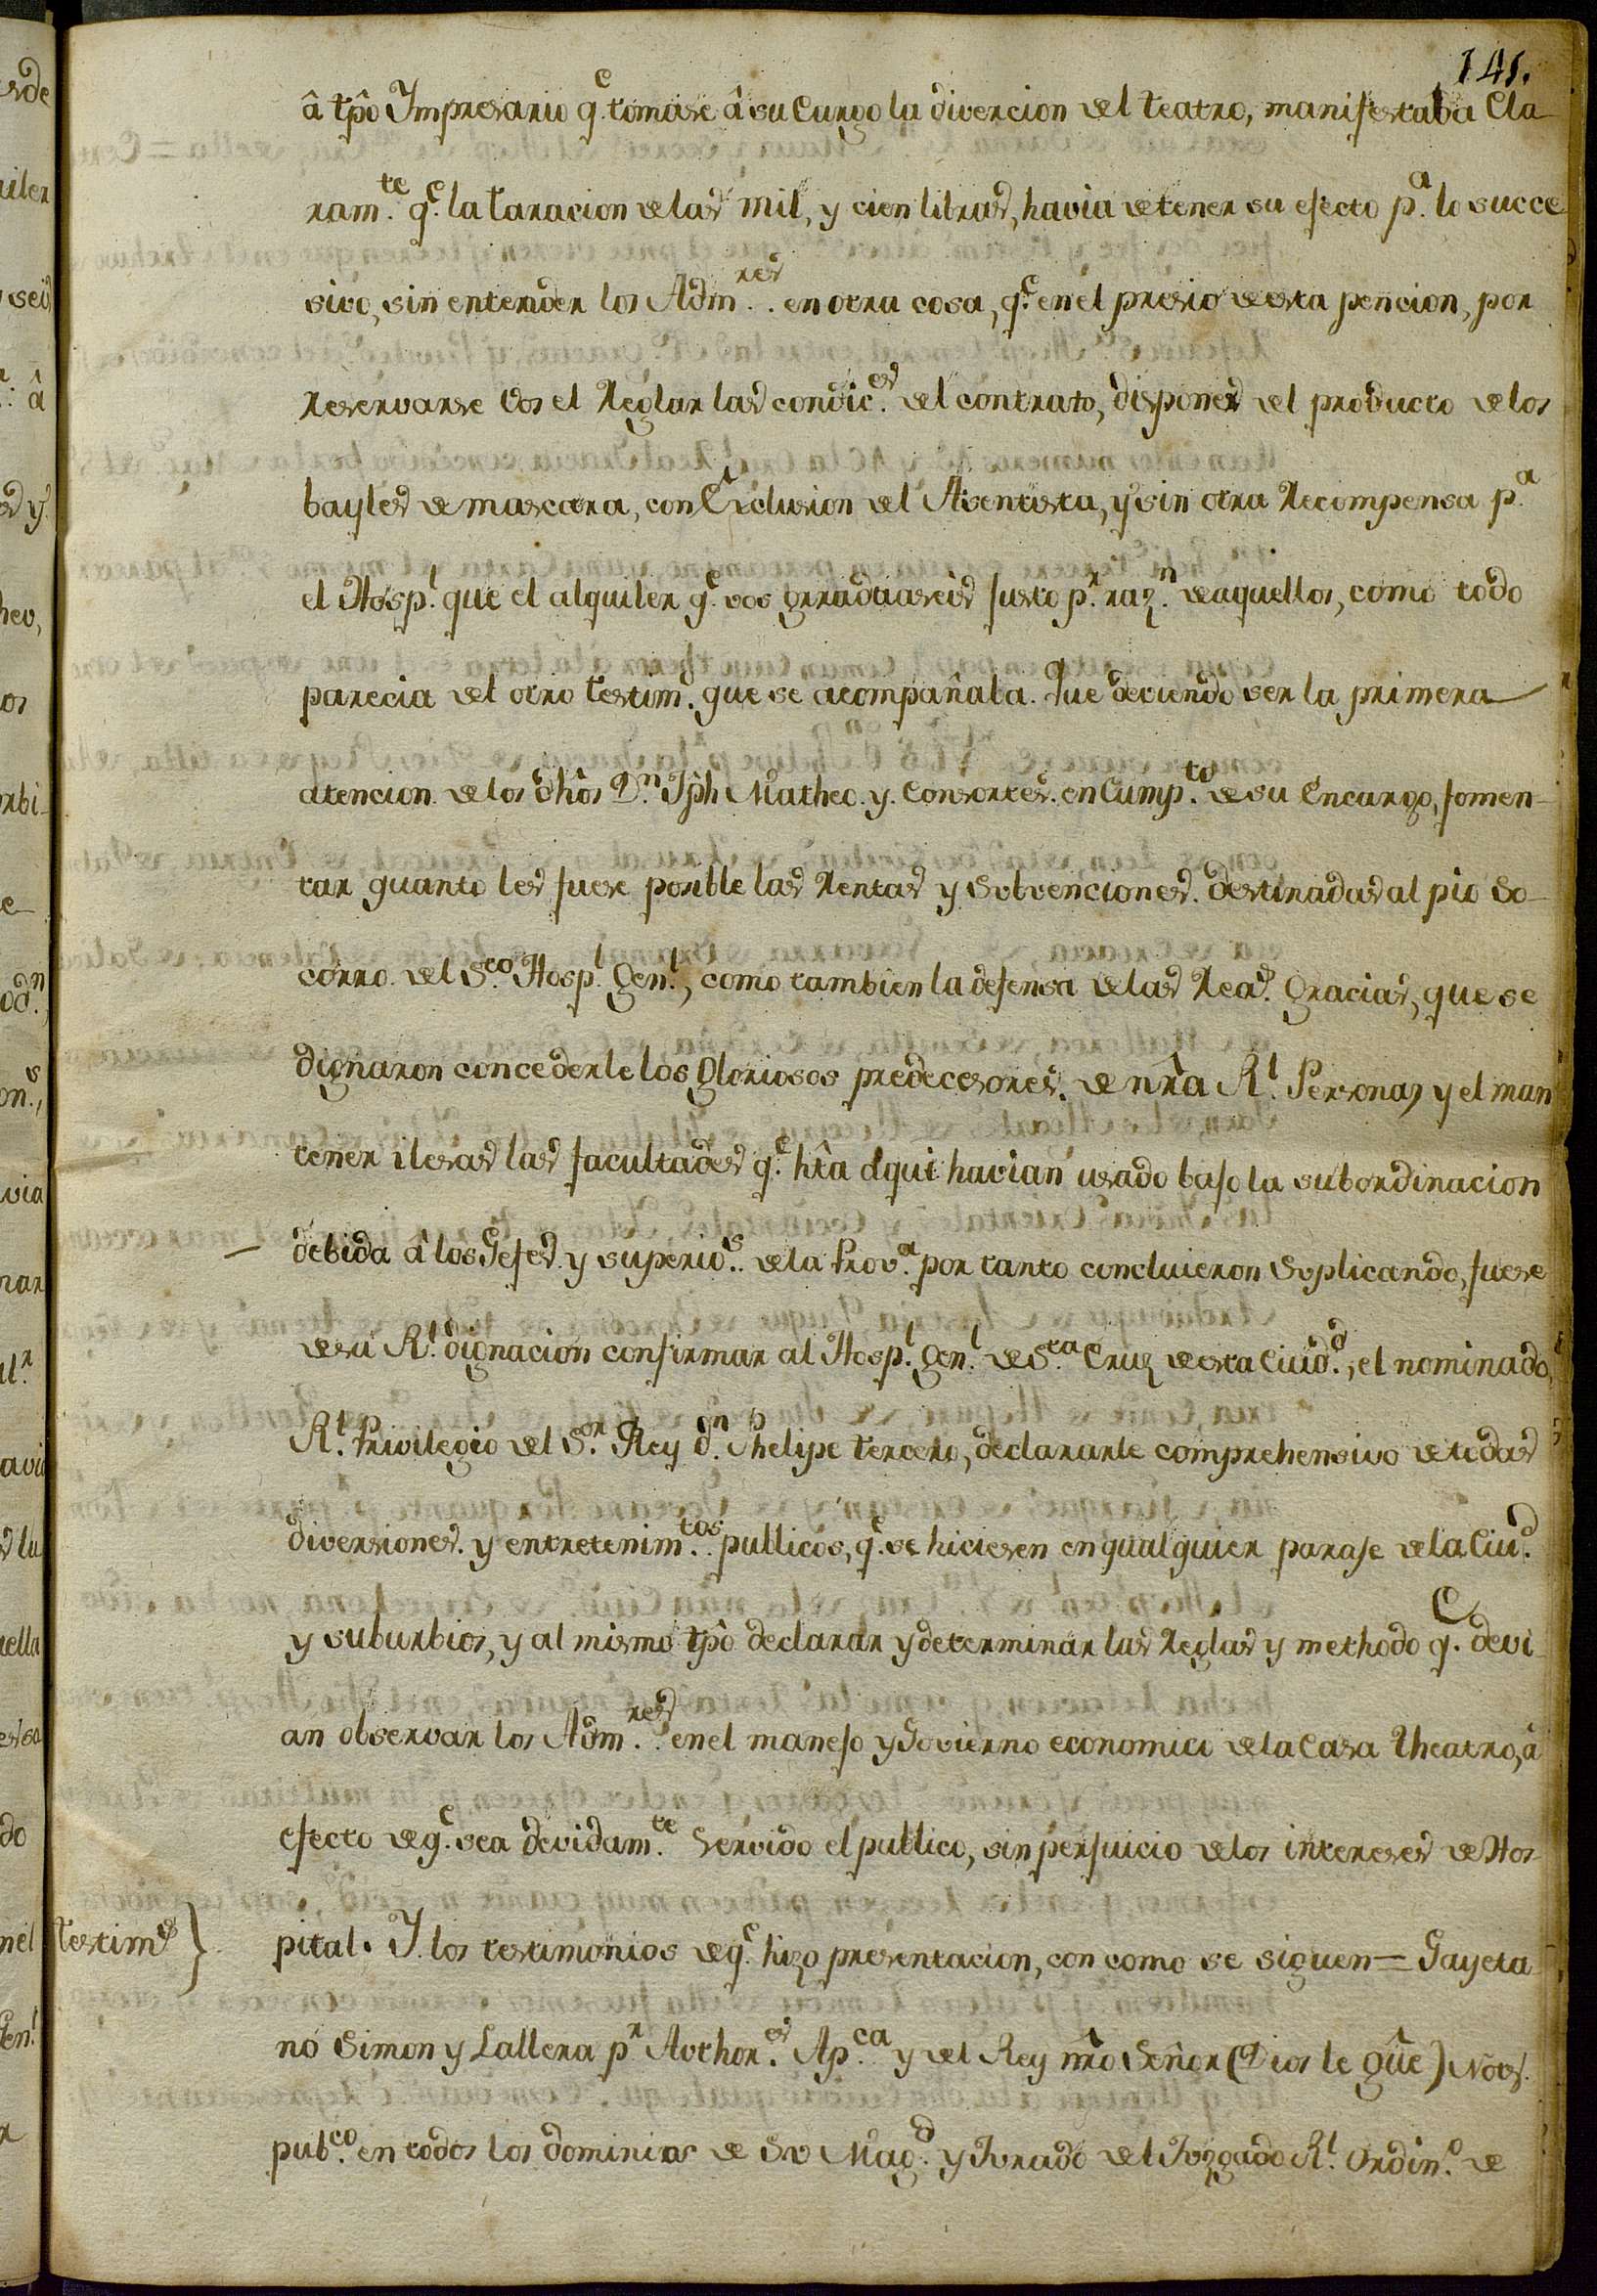 141.
â tp̂o Impresario q.e tomase â su Cargo la divercion del teatro, manifestaba Cla-
ram.te q.e la taxacion de las mil, y cien libras, havia de tener su efecto p.a lo succe
sivo, sin entender los Adm.res en otra cosa, q.e en el presio de esta pencion, por
Reservarse Vos el Reglar las condic.es del contrato, disponer del producto de los
bayles de mascara, con Exclusion del Asentista, y sin otra Recompensa p.a
el Hosp.l que el alquiler q.e vos graduaseis justo p.r raz.n de aquellos, como todo
parecia del otro testim.o que se acompañaba. Que deviendo ser la primera
atencion de los dhôs D.n Jph Matheo y Consortes en Cump.to de su Encargo, fomen-
tar quanto les fuese posible las Rentas y Subvenciones destinadas al pio So-
corro del S.to Hosp.l Gen.l, como tambien la defensa de las Rea.s Gracias, que se
dignaron concederle los Gloriosos predecesores de nrâ R.l Persona, y el man
tener ilesas las facultades q.e htâ aqui havian usado bajo la subordinacion
debida â los Gefes y superio.s de la Prov.a por tanto concluieron Suplicando, fuese
de su R.l dignacion confirmar al Hosp.l Gen.l de S.ta Cruz de esta Ciud.d, el nominado
R.l Privilegio del S.or Rey d.n Phelipe tercero, declararle comprehensivo de todas
diversiones y entretenim.tos publicos, q.e se hiciesen en qualquier paraje de la Ciu.d
y suburbios, y al mismo tp̂o declarar y determinar las Reglas y methodo q.e devi
an observar los Adm.res en el manejo y Govierno economico de la Casa Theatro, â
efecto de q.e sea devidam.te Servido el publico, sin perjuicio de los intereses de Hos-
testim.s } pital. Y los testimonios de q.e hizo presentacion, con como se siguen = Gayeta
no Simon y Lallena p.r Author.es Ap.ca y del Rey nrô Señor (Dios le gûe) Not.
pub.co en todos los dominios de Su Mag.d y Jurado del Juzgado R.l Ordin.o de